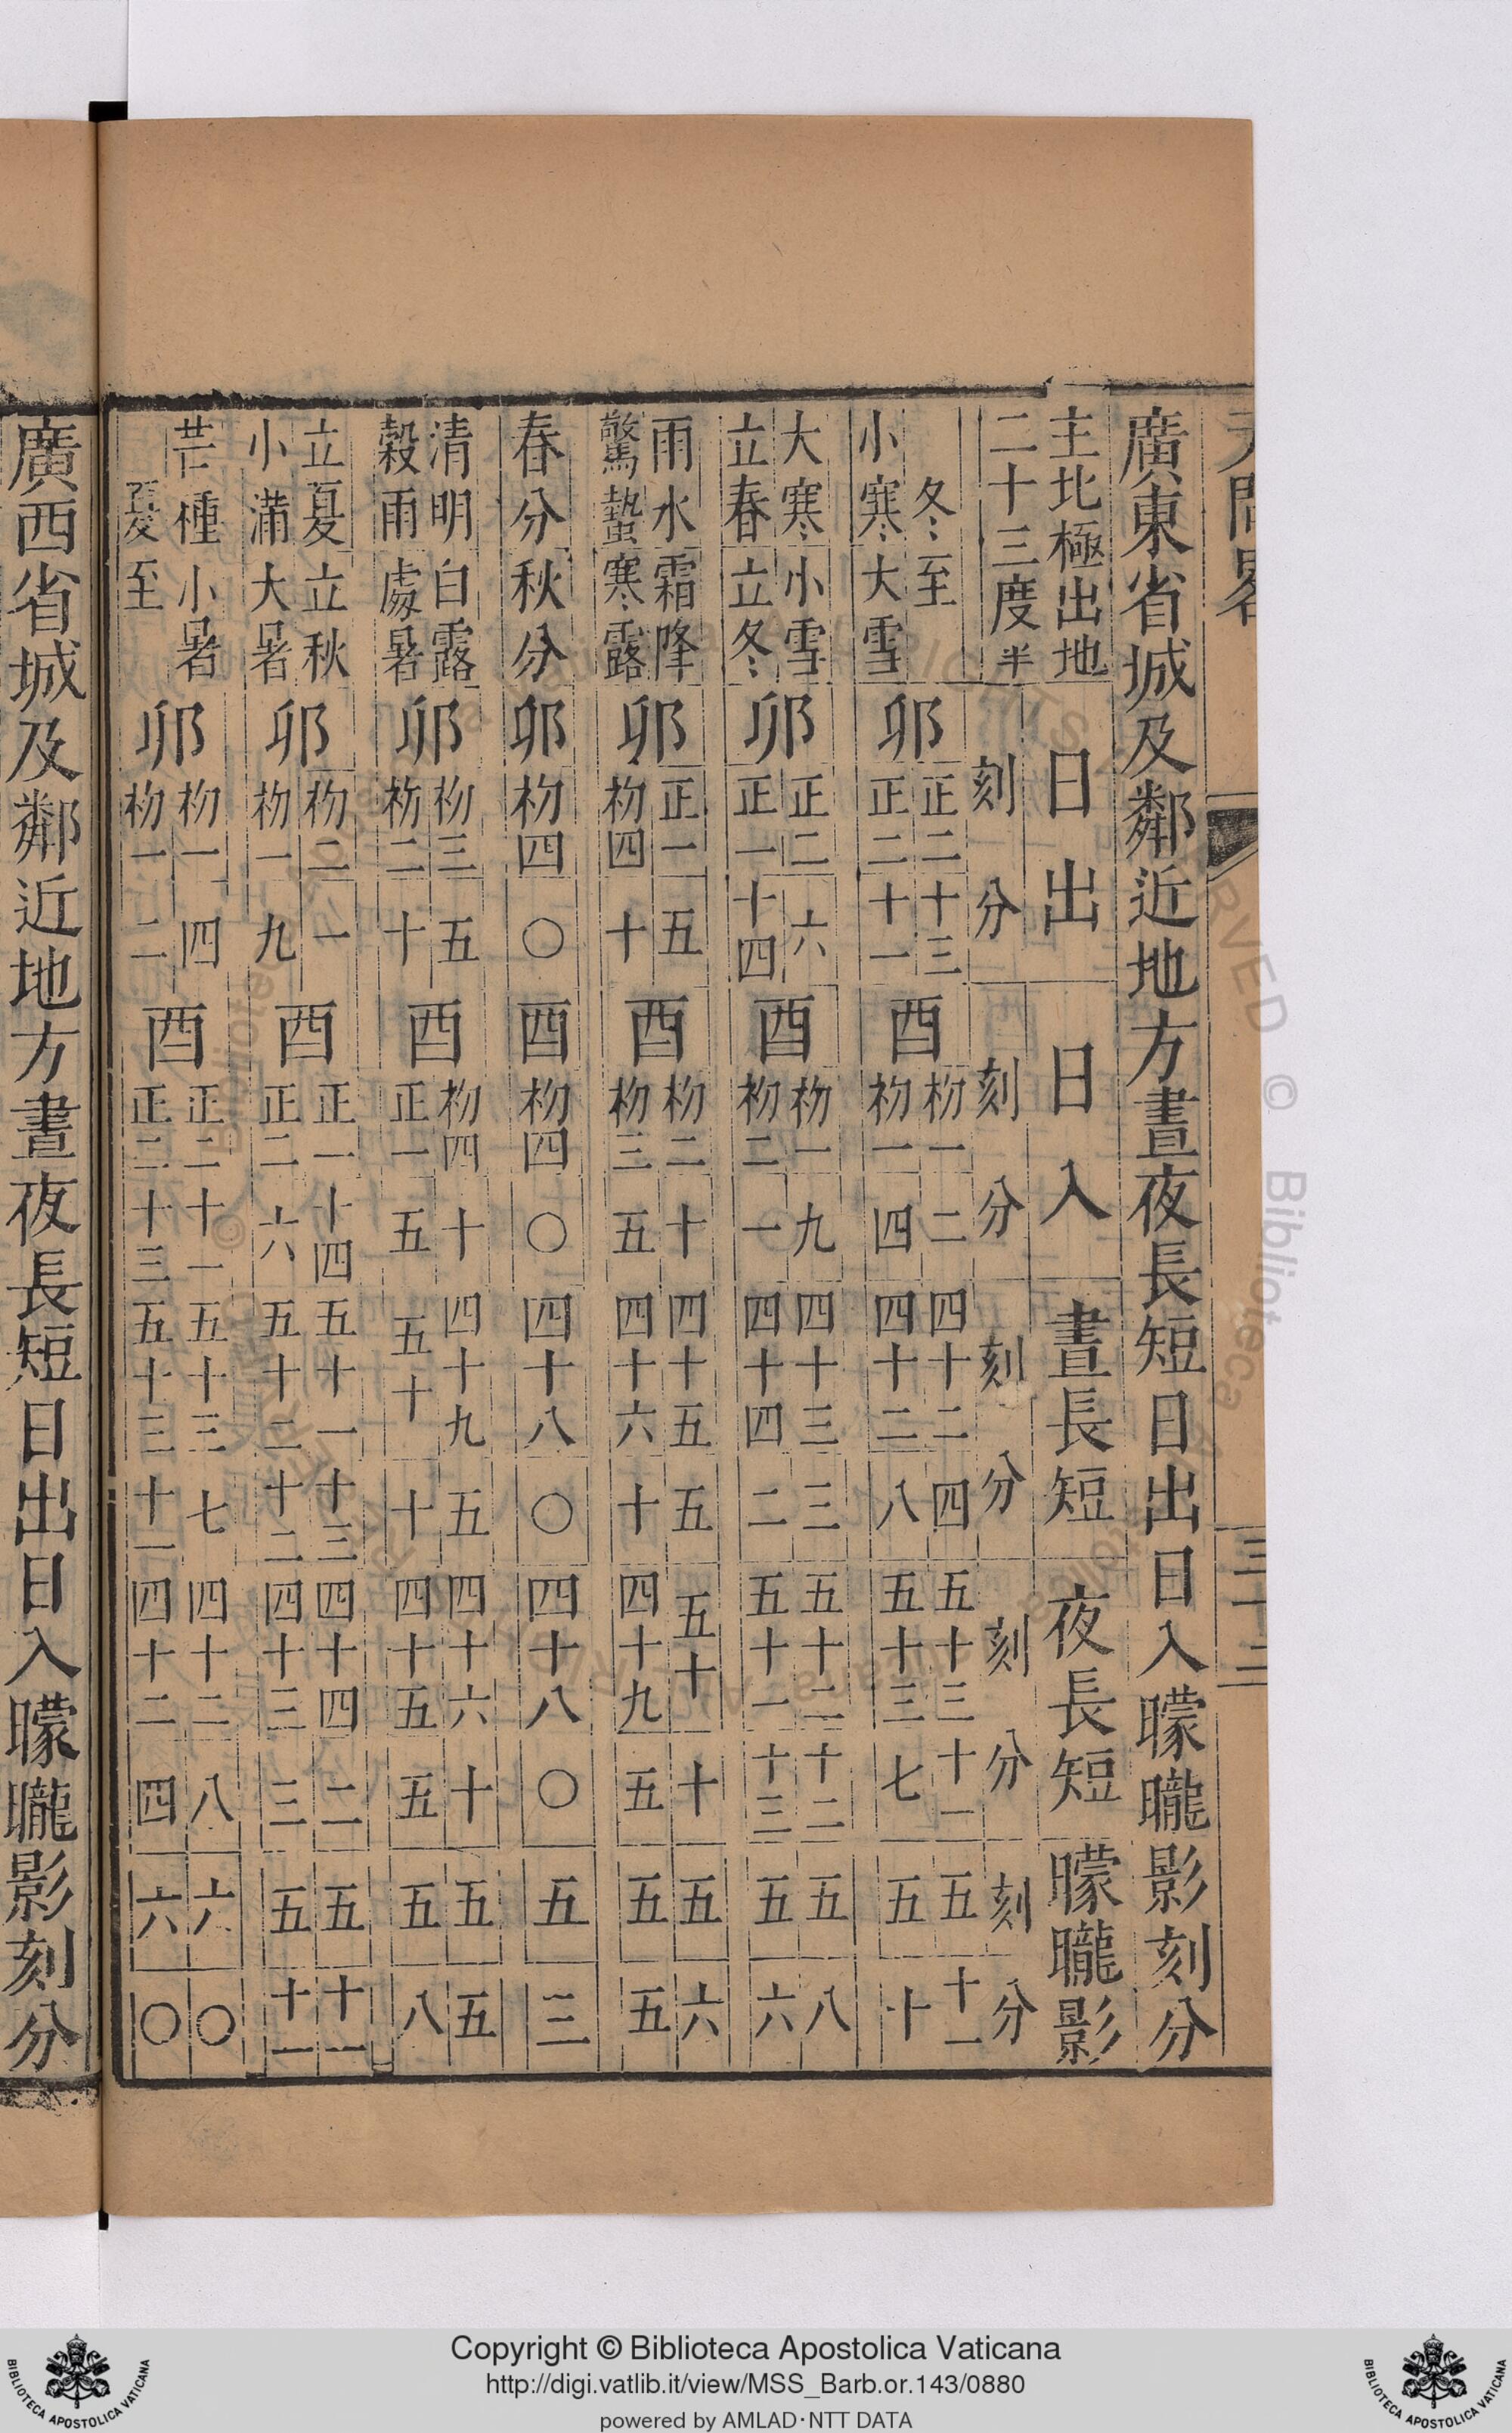 廣東省城及鄰近地方晝夜長短日出日入曚曨影刻分
主北極出地 日出 日入 晝長短 夜長短 曚曨影
二十三度半 刻 分 刻 分 刻 分 刻 分 刻 分
冬至 卯 正二 十三 酉 初一 二 四十二 四 五十三 十一 五 十一
小寒 大雪 正二 十一 初一 四 四十二 八 五十三 七 五 十
大寒 小雪 卯 正二 六 酉 初一 九 四十三 三 五十二 十二 五 八
立春 立冬 正一 十四 初二 一 四十四 二 五十一 十三 五 六
雨水 霜降 卯 正一 五 酉 初二 十 四十五 五 五十 十 五 六
驚蟄 寒露 初四 十 初三 五 四十六 十 四十九 五 五 五
春分 秋分 卯 初四 〇 酉 初四 〇 四十八 〇 四十八 〇 五 三
清明 白露 卯 初三 五 酉 初四 十 四十九 五 四十六 十 五 五
穀雨 處暑 初二 十 正一 五 五十 十 四十五 五 五 八
立夏 立秋 卯 初二 一 酉 正一 十四 五十一 十三 四十四 二 五 十一
小滿 大暑 初一 九 正二 六 五十二 十二 四十三 三 五 十一
芒種 小暑 卯 初一 四 酉 正二 十一 五十三 七 四十二 八 六 〇
夏至 初一 二 正二 十三 五十三 十一 四十二 四 六 〇
廣西省城及鄰近地方晝夜長短日出日入曚曨影刻分
Copyright © Biblioteca Apostolica Vaticana
http://digi.vatlib.it/view/MSS_Barb.or.143/0880
powered by AMLAD·NTT DATA
BIBLIOTECA APOSTOLICA VATICANA
BIBLIOTECA APOSTOLICA VATICANA